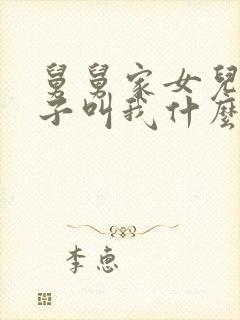 舅舅家女兒
子叫我什麼
李惠